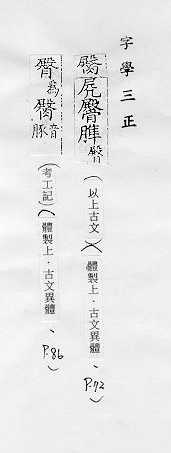 字學三正
臀脽（以上古文）（體製上．古文異體、P.72）
為音豚（考工記）（體製上．古文異體、P.86）